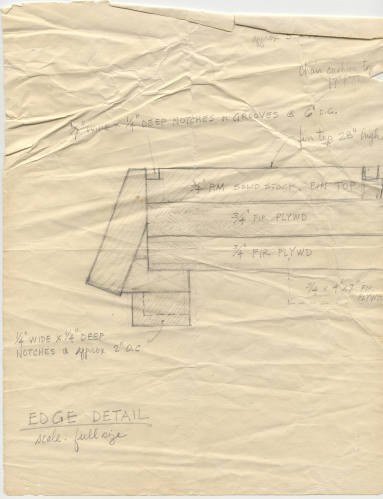 approx
Chair cushion to
WIDE x 1/4" DEEP NOTCHES n GROOVES @ 6" O.C.
fin top 28" high
3/4" P.M. SOLID STOCK. FIN TOP
3/4" FIR PLYWD
3/4" FIR PLYWD
3/4 x 4" x 7" FIR
PLYWD
1/4" WIDE x 1/4" DEEP
NOTCHES @ approx 2" O.C
EDGE DETAIL
scale - full size